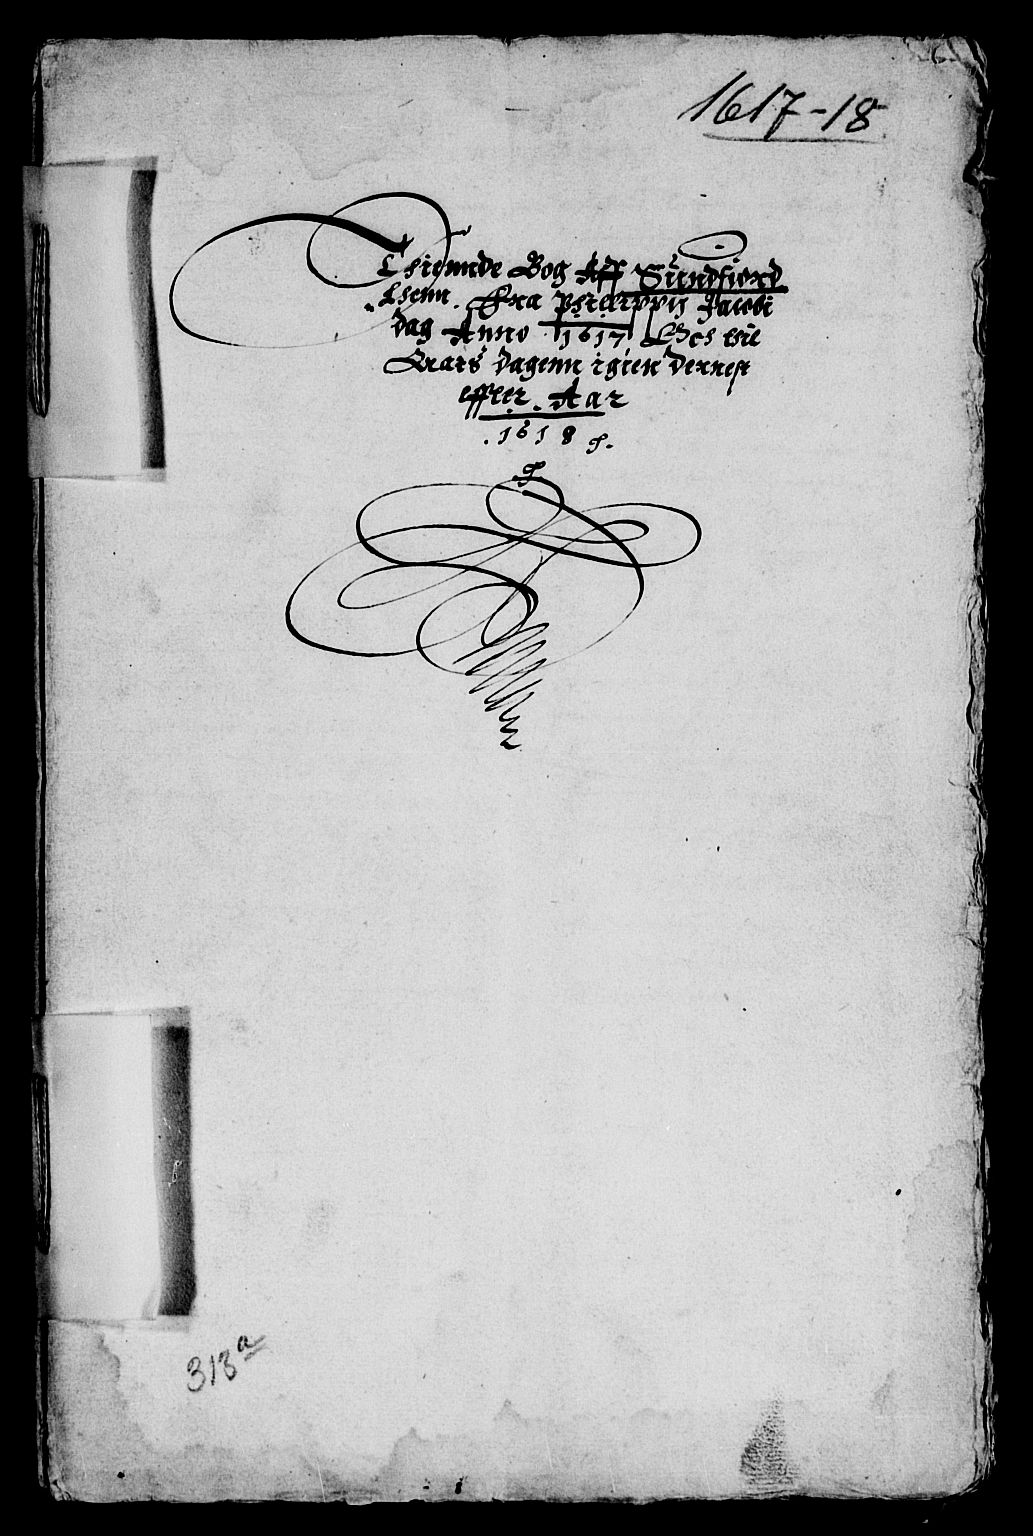 1617-18
Thiennde Bog Aff Sundfiord
Lhenn. Fra Philippij Jacobi
dag Anno 1617 Och till
Aars dagenn igien dernest
effter. Aar
.1618.
313a